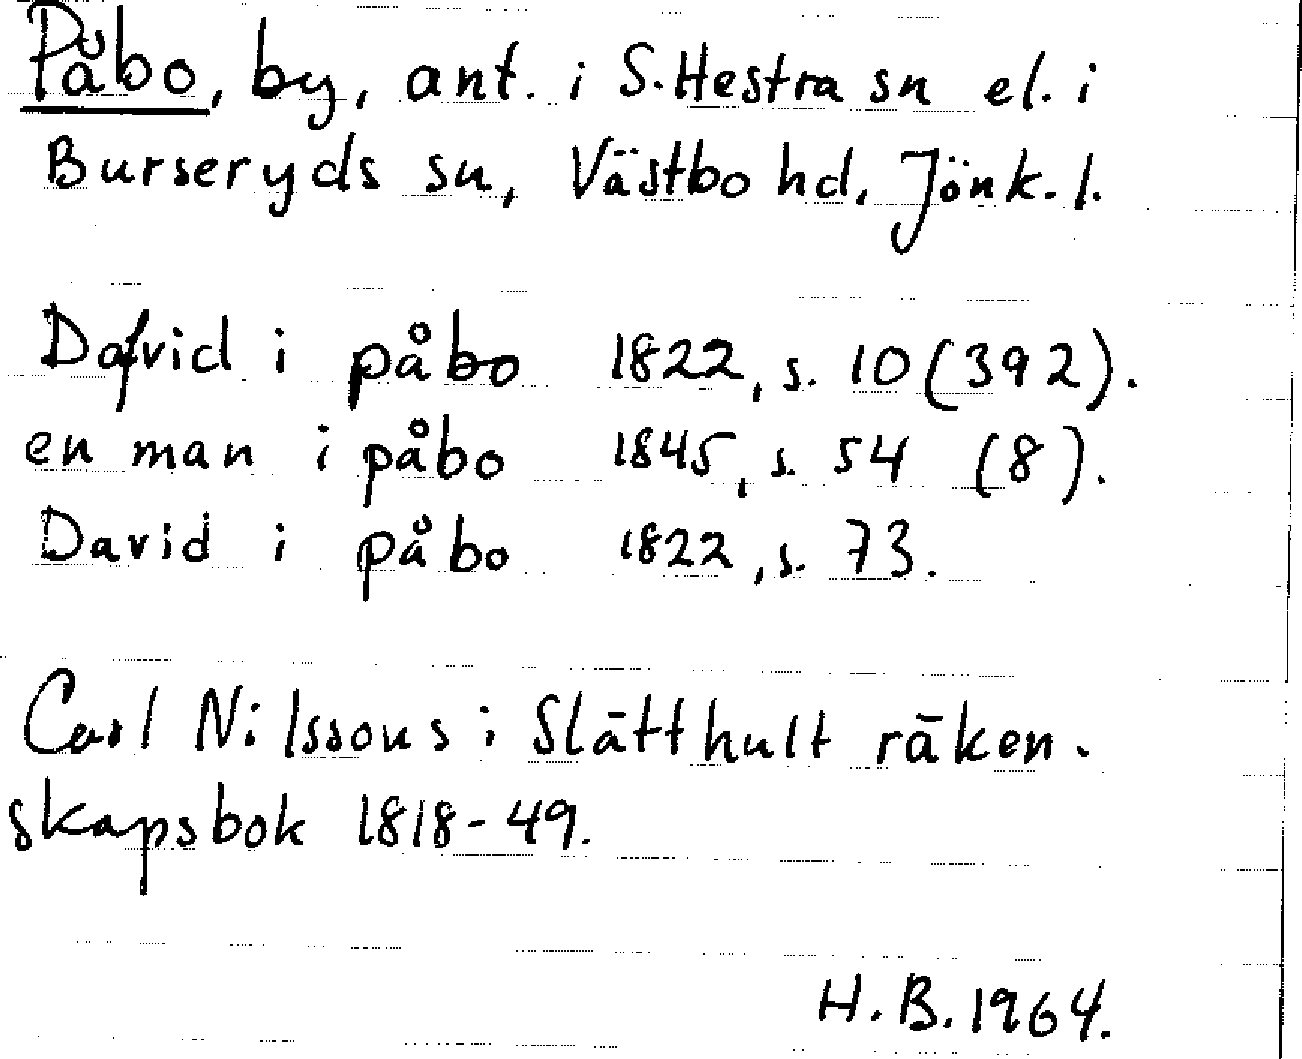 Påbo, by, ant. i S. Hestra sn el. i
Burseryds sn, Västbo hd, Jönk. l.
Dafvid i påbo 1822, s. 10 (392).
en man i påbo 1845, s. 54 (8).
David i påbo 1822, s. 73.
Carl Nilssons i Slätthult räken-
skapsbok 1818-49.
H. B. 1964.